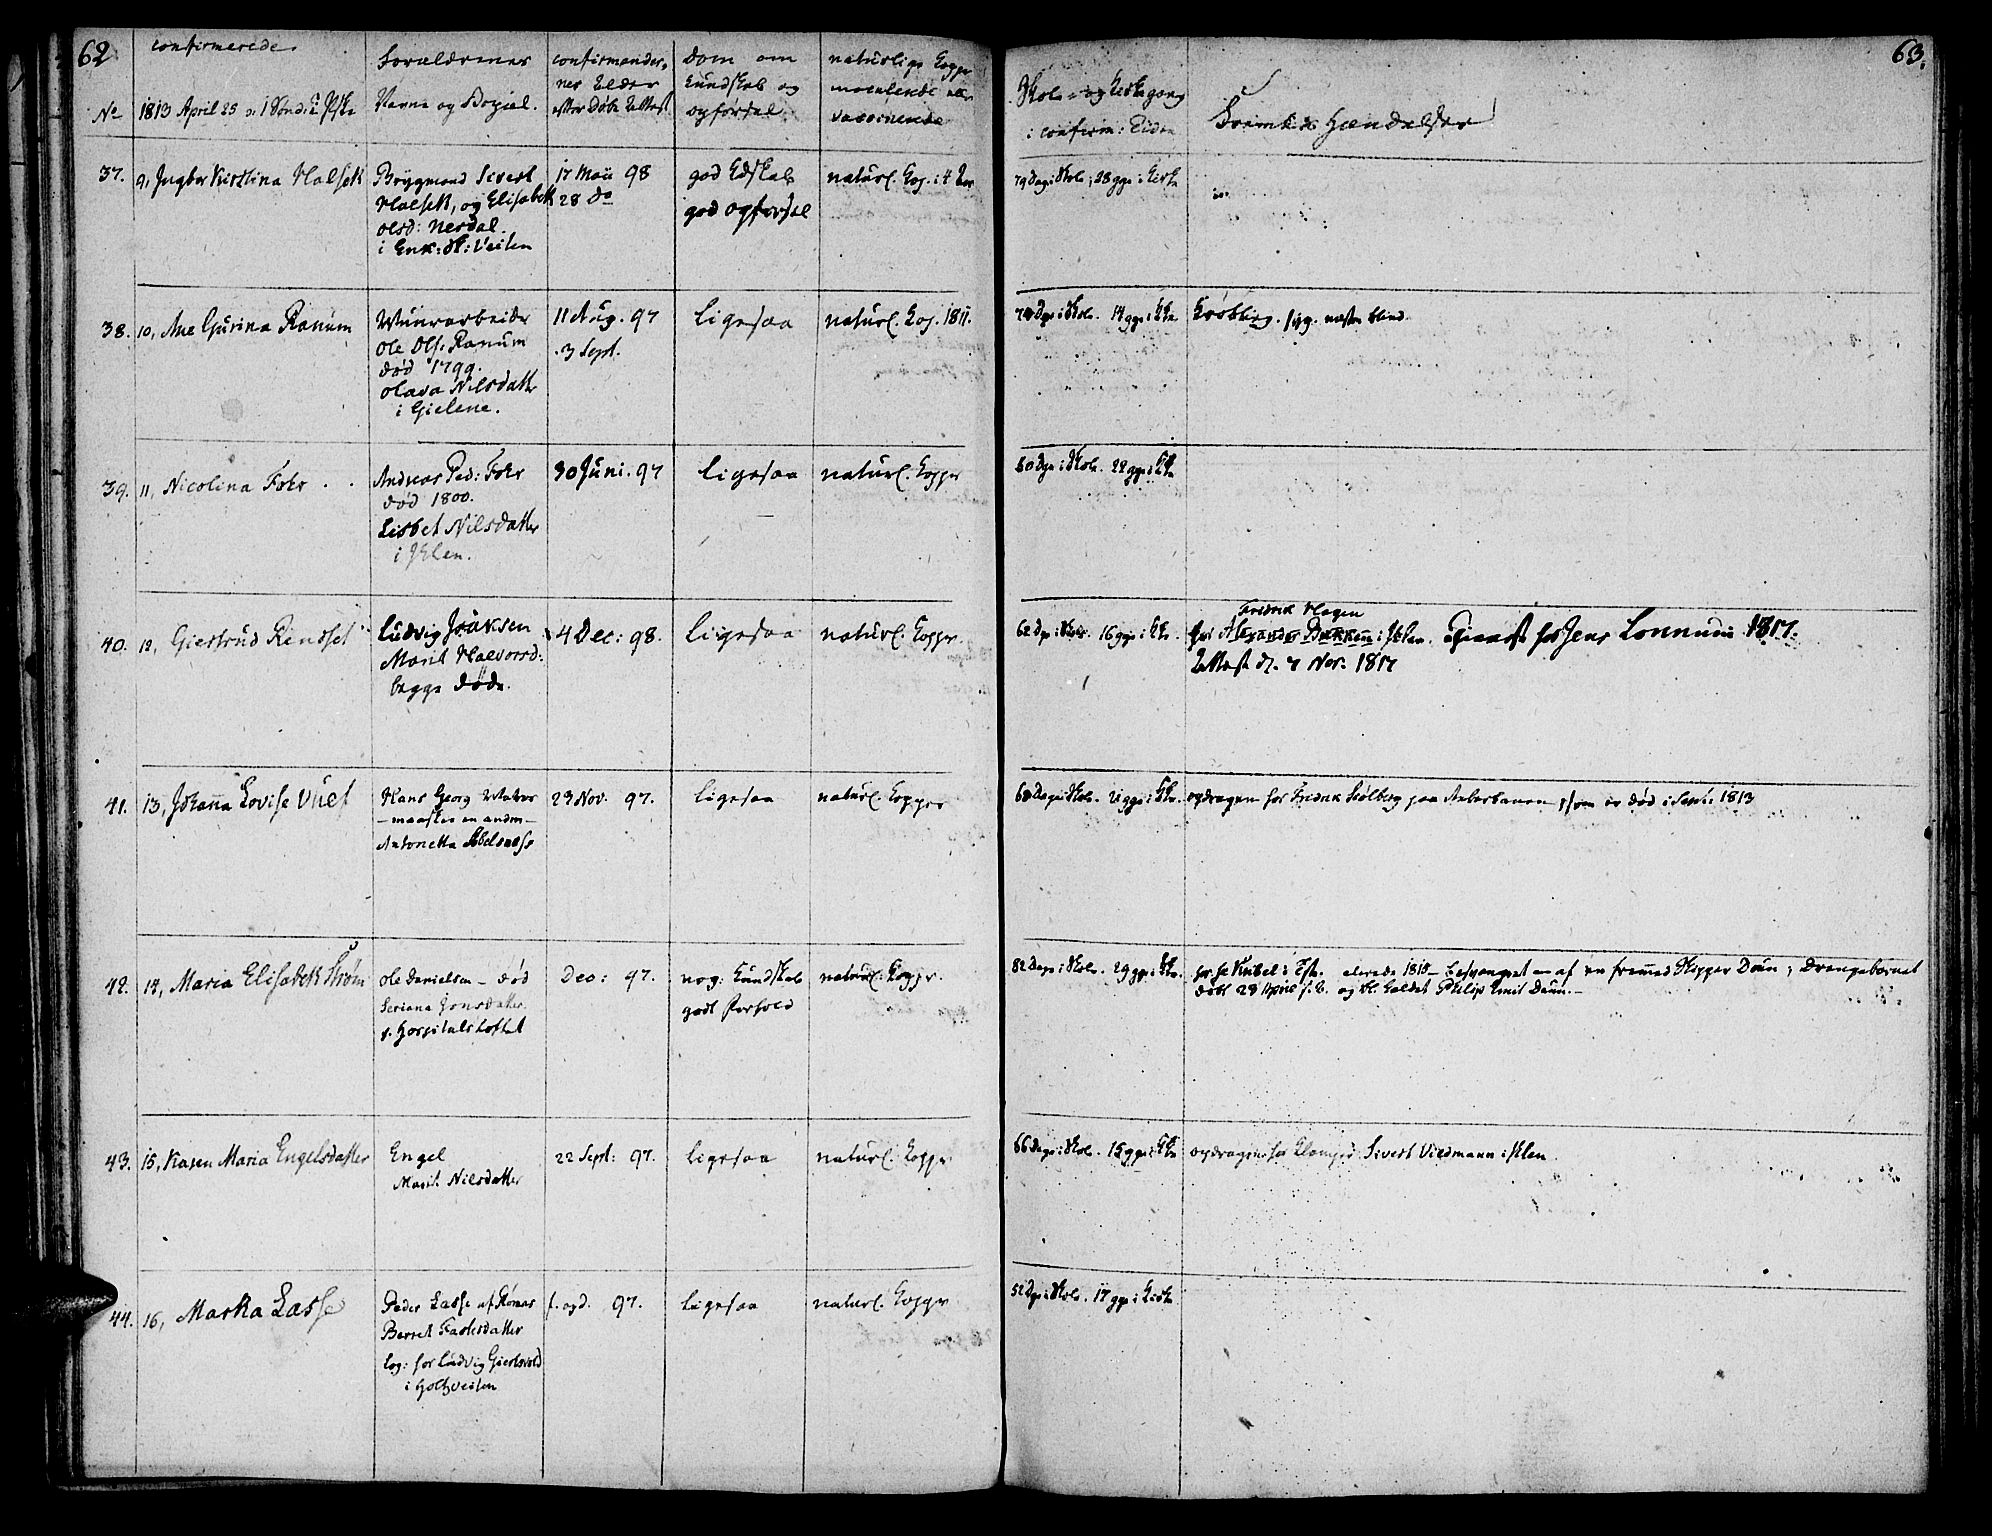 62
confirmerede
No
1813 April 25
Forældrenes
Navne og
confirmander,
nes Alder
efter Døbe Attest
Dom om
Kundskab og
opførsel
naturlige Kopper
vaccinerede
37. 9, Ingbor Kirstina Halseth
Brygmand Sivert
Halseth, og Elisabeth
Olsd: Nesdal
i Enk: St: Veiten
17 Maii 98
28 do
god Kdskab
god opførsel
naturl. Kop. i 4
38. 10, Ane Gurina Ranum
Muurarbeider
Ole Ols: Ranum
død 1799.
Olava Nilsdatter
i Gielene.
11 Aug. 97
3 Sept.
ligesaa
naturl. Kop. 1811.
39. 11, Nicolina Fohr . .
Andreas Ped: Fohr
død 1800.
Lisbet Nilsdatter
i Jhlen.
30 Juni. 97
ligesaa
naturl. Kopper
40. 12, Giertrud Rindset
Ludvig Isaksen
Marit Halvorsd:
begge døde.
4 Dec: 98.
ligesaa
naturl. Kopper
41. 13, Johanna Lovise
Hans Georg
maaskee en anden
Antonetta
23 Nov. 97.
ligesaa
naturl. Kopper
42. 14, Maria Elisabeth Strøm
Ole Danielsen – død
Seriana Jonsdatter
p. Hospitals Loftet
Dec: 97.
nog: Kundskab
godt forhold
naturl. Kopper.
43. 15, Karen Maria Engelsdatter
Engel
Marit Nilsdatter
22 Sept: 97.
ligesaa
naturl. Kopper
44. 16, Martha Lasse
Peder Lasse af Røraas
Berret
log: hos Ludvig
i Holtveiten
97.
ligesaa
naturl. Kopper
63.
Skole og Kirkegang
i confirm: Tiden
Hændelser
79 Dage i Skole, 28 gge i Kirke
74 Dge i Skole. 14 gge i Kke
næsten blind.
80 Dge i Skole. 22 gge i Kke
62 Dge i Skole. 16 gge i Kke
Fredrik Hagen
hos Alexander Bakken i Jhlen. Tieneste hos Jens Lonnum 1817.
Attest d. 7 Nov: 1817
Dage i Skole. 21 gge i Kke.
opdragen hos Fredrik Stølberg paa som er død i Sept: 1813
82 Dage i Skole. 29 gge i Kke.
allerede 1815 – besvangret – af en fremmed Skipper Daun; Drengebarnet
døbt 28 April og bl. kaldet Philip Emil Daun. –
66 Dage i Skole. 15 gge i Kke
opdragen hos Sivert Viedmann i Jhlen
52 Dge i Skole. 17 gge i Kirke